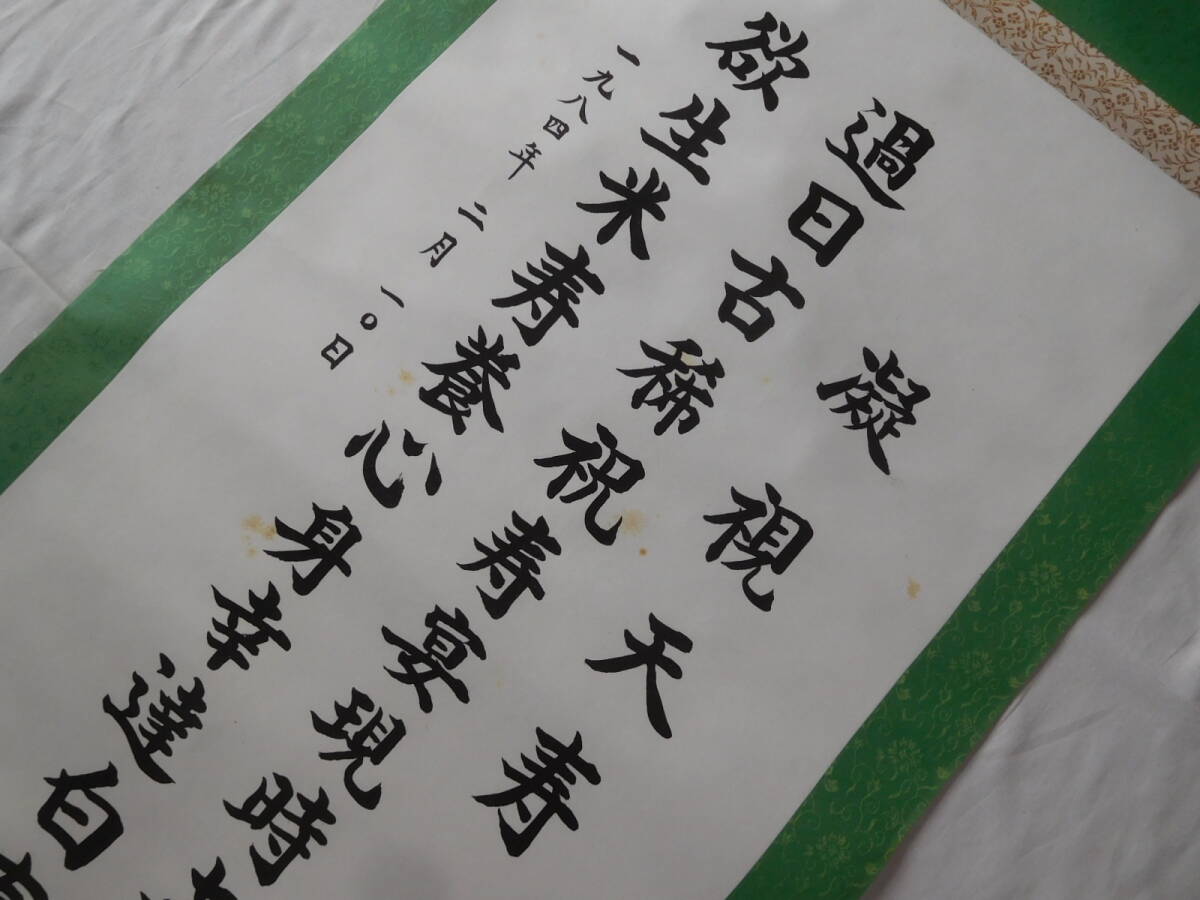 凝視天寿
過日古稀祝寿宴現時
欲生米寿養心身幸達白
一九八四年 二月 一〇日